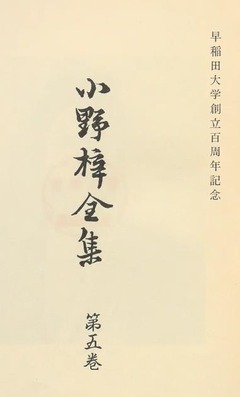 早稲田大学創立百周年記念
小野梓全集
第五巻